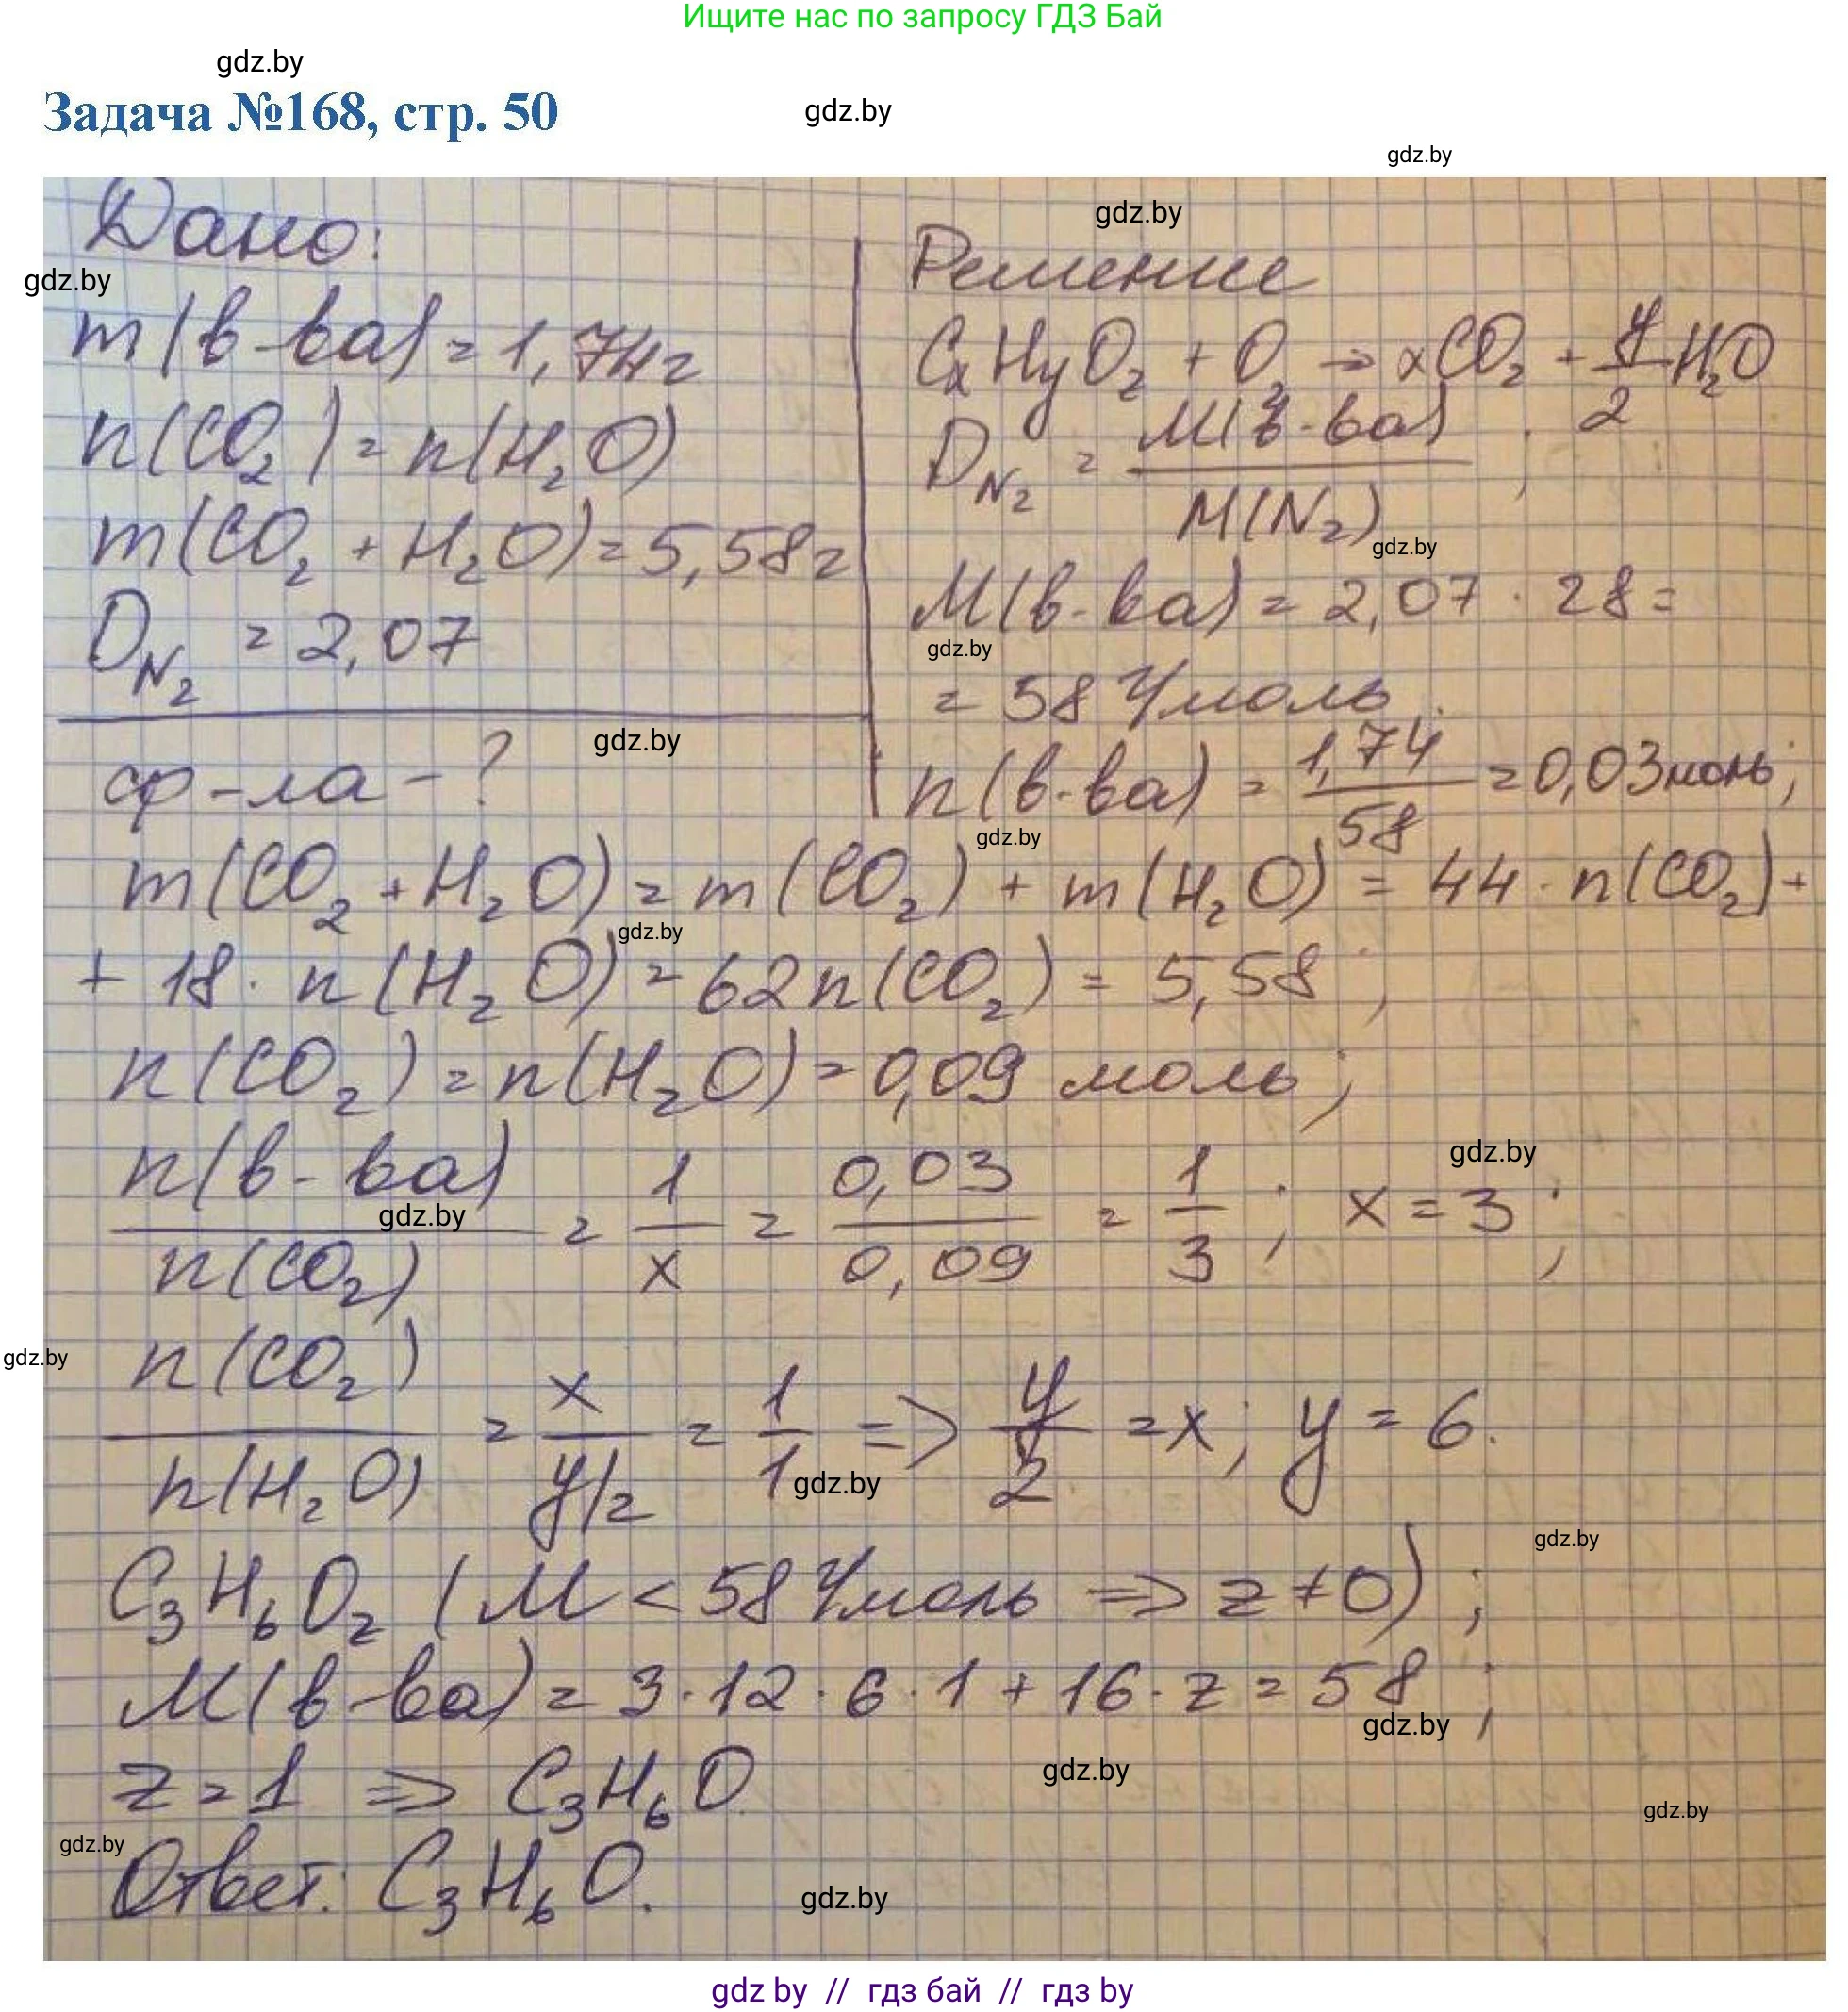 Ищите нас по запросу ГДЗ Бай
gdz.by
Задача №168, стр. 50
gdz.by
gdz.by
gdz.by
Дано:
gdz.by
m(в-ва) = 1,74 г
n(CO₂) = n(H₂O)
m(CO₂ + H₂O) = 5,58 г
D_N₂ = 2,07
gdz.by
ф-ла - ?
Решение
CxHyOz + O₂ → xCO₂ + y/2 H₂O
D_N₂ = M(в-ва) / M(N₂) ;
gdz.by
M(в-ва) = 2,07 · 28 =
gdz.by
= 58 г/моль.
n(в-ва) = 1,74 / 58 = 0,03 моль;
gdz.by
m(CO₂ + H₂O) = m(CO₂) + m(H₂O) = 44 · n(CO₂) +
gdz.by
+ 18 · n(H₂O) = 62n(CO₂) = 5,58 ;
n(CO₂) = n(H₂O) = 0,09 моль ;
gdz.by
n(в-ва) / n(CO₂) = 1 / x = 0,03 / 0,09 = 1 / 3 ; x = 3 ;
gdz.by
gdz.by
n(CO₂) / n(H₂O) = x / y/2 = 1 / 1 => y / 2 = x; y = 6.
gdz.by
gdz.by
C₃H₆Oz (M < 58 г/моль => z ≠ 0) ;
M(в-ва) = 3 · 12 · 6 · 1 + 16 · z = 58 ;
gdz.by
gdz.by
z = 1 => C₃H₆O
gdz.by
gdz.by
Ответ: C₃H₆O.
gdz.by
gdz by // гдз бай // гдз by